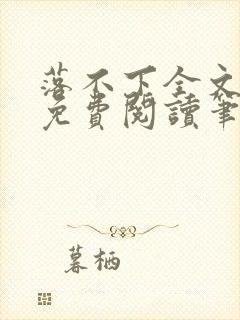 落不下全文
免費閱讀筆
暮栖